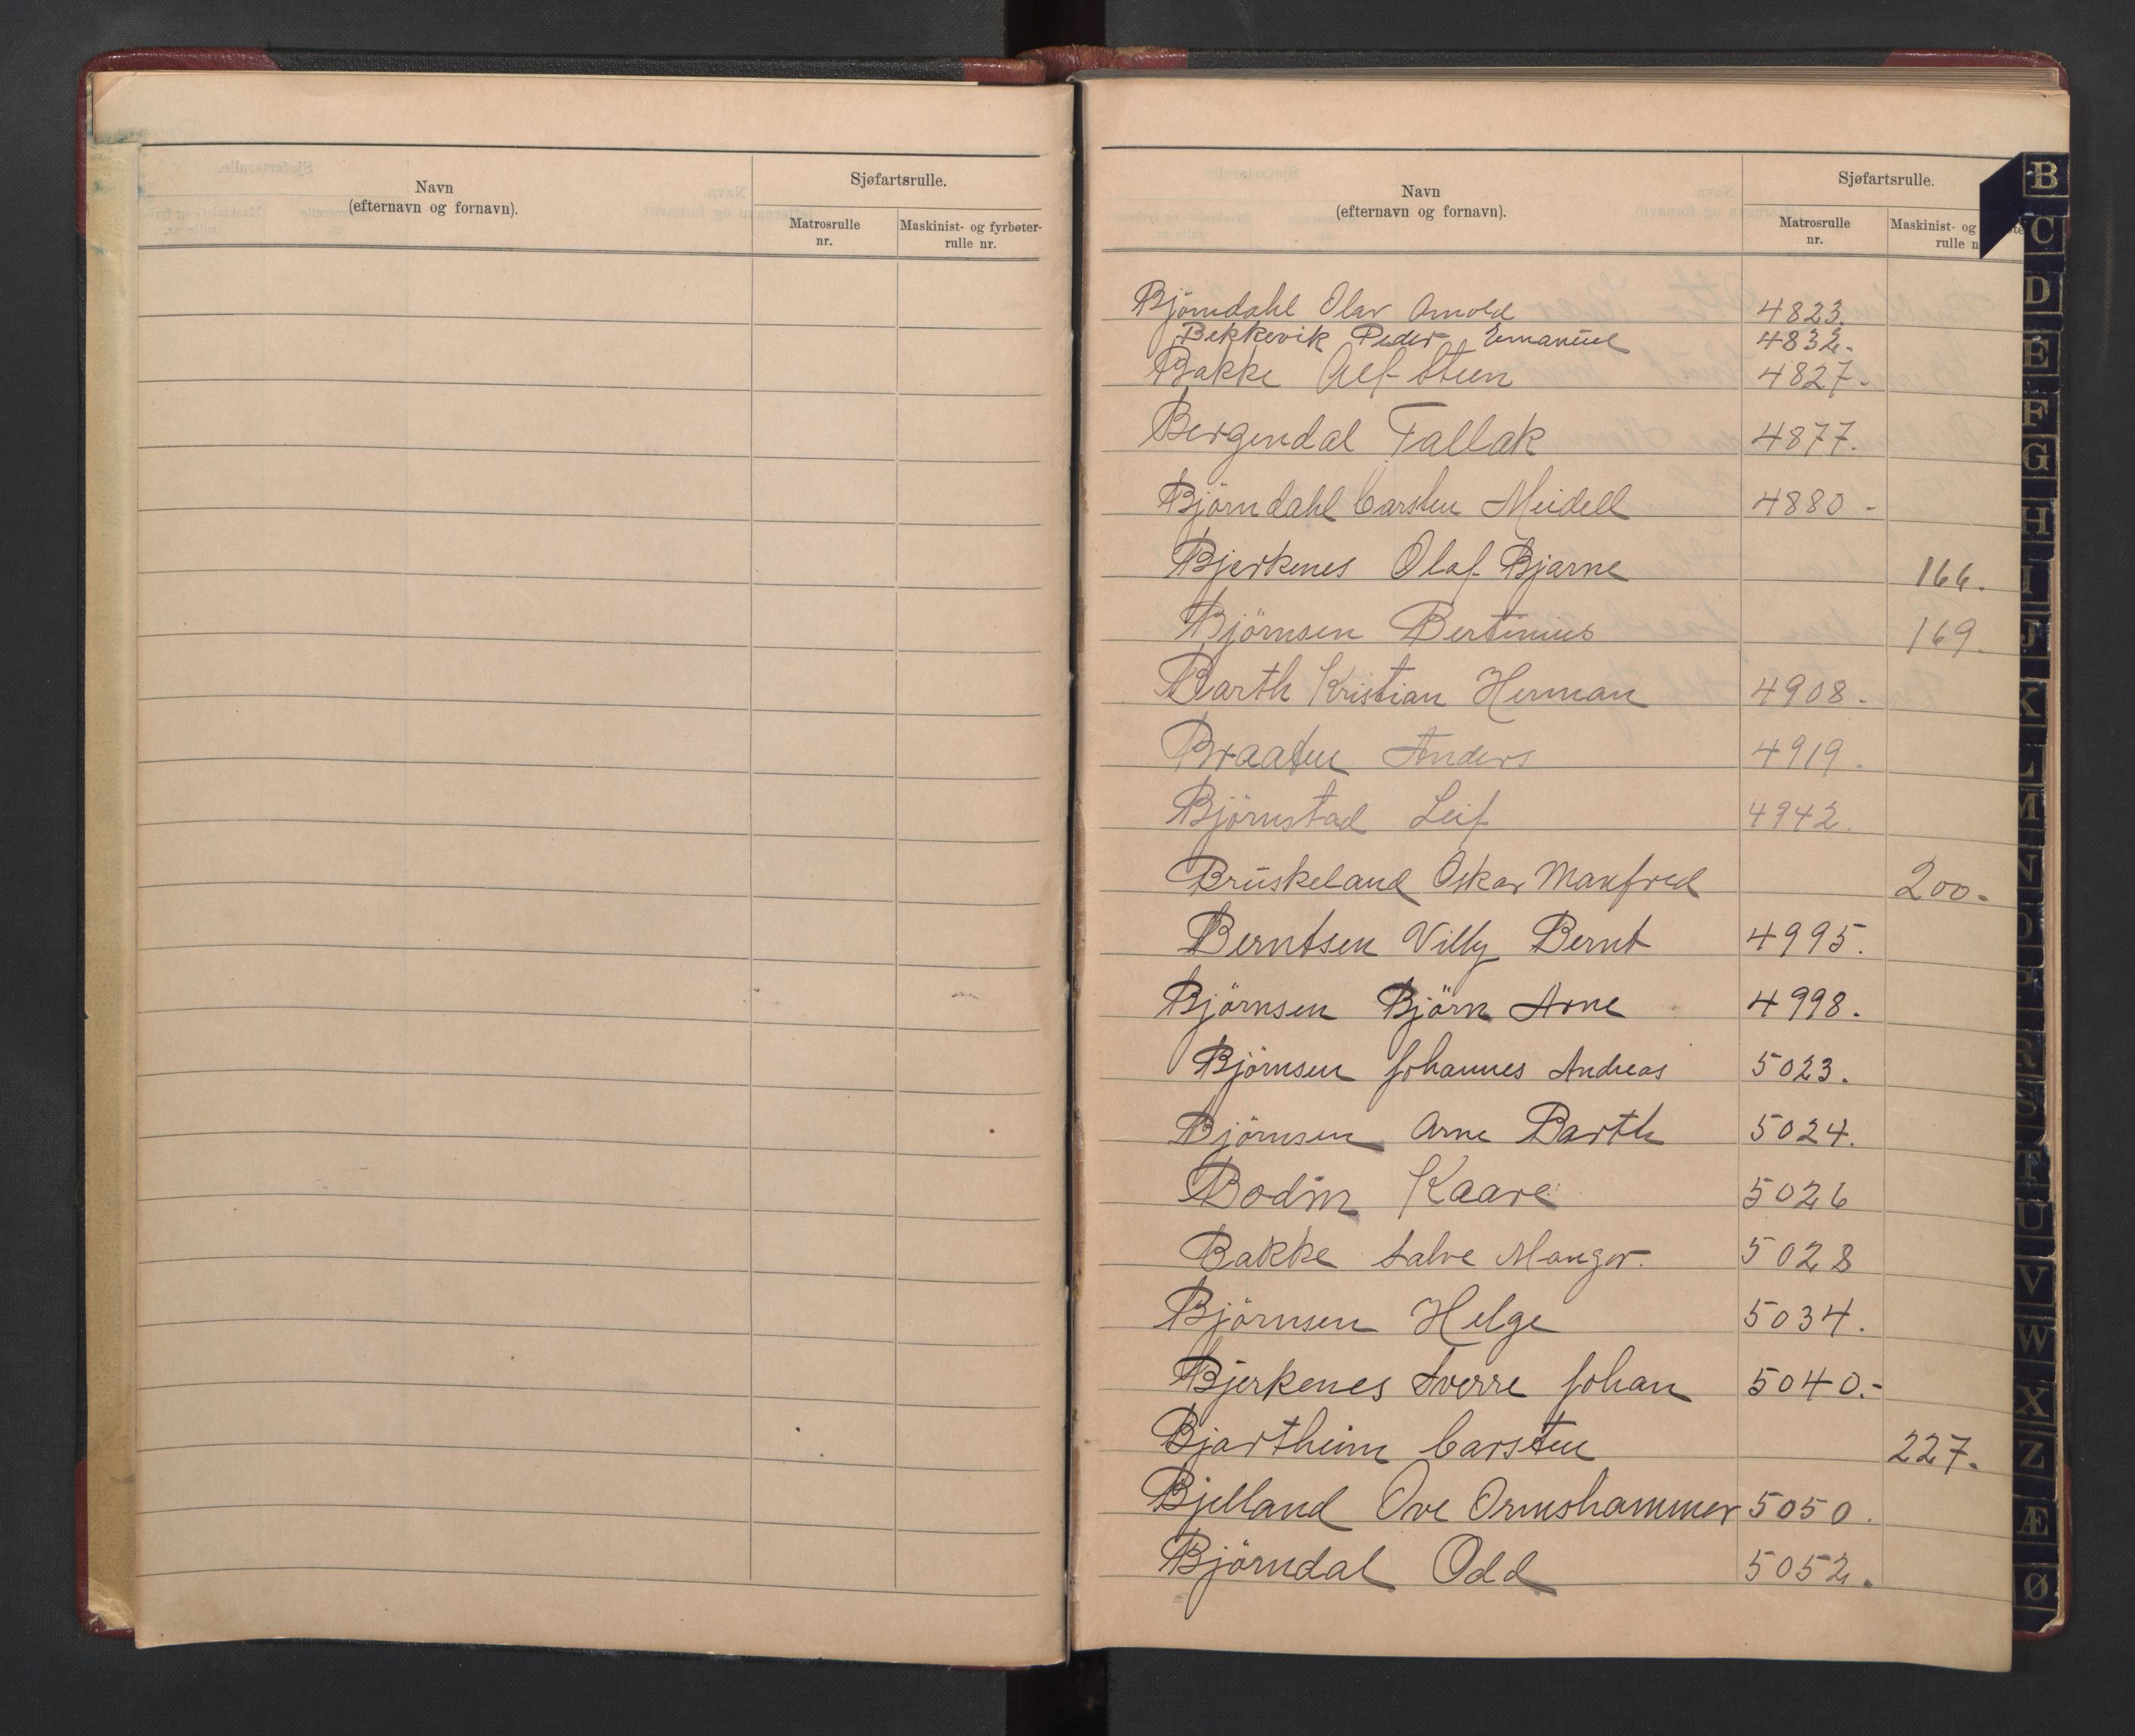 Navn
(efternavn og fornavn).
Sjøfartsrulle.
Matrosrulle
nr.
Maskinist- og fyrbøter-
rulle nr.
Navn
(efternavn og fornavn).
Sjøfartsrulle.
Matrosrulle
nr.
Maskinist- og
rulle n
Björndahl Olav Arnold 4823.
Bekkevik Peder Emanuel 4832.
Bakke Alf Steen 4827.
Bergendal Tallak 4877.
Björndahl Carsten Meidell 4880
Bjerkenes Olaf Bjarne 166.
Björnsen Bertinius 169.
Barth Kristian Herman 4908.
Braaten Anders 4919.
Björnstad Leif 4942.
Bruskeland Oskar Manfred 200.
Berntsen Villy Bernt 4995.
Björnsen Björn Arne 4998.
Björnsen Johannes Andreas 5023.
Björnsen Arne Barth 5024.
Bodin Kaare 5026
Bakke Salve Mangor. 5028
Björnsen Helge 5034.
Bjerkenes Sverre Johan 5040.-
Bjartheim Carsten 227.
Bjelland Ove Ormshammer 5050.
Björndal Odd 5052.
B
C
D
E
F
G
H
I
J
K
L
M
N
O
P
R
S
T
U
V
W
X
Z
Æ
Ø